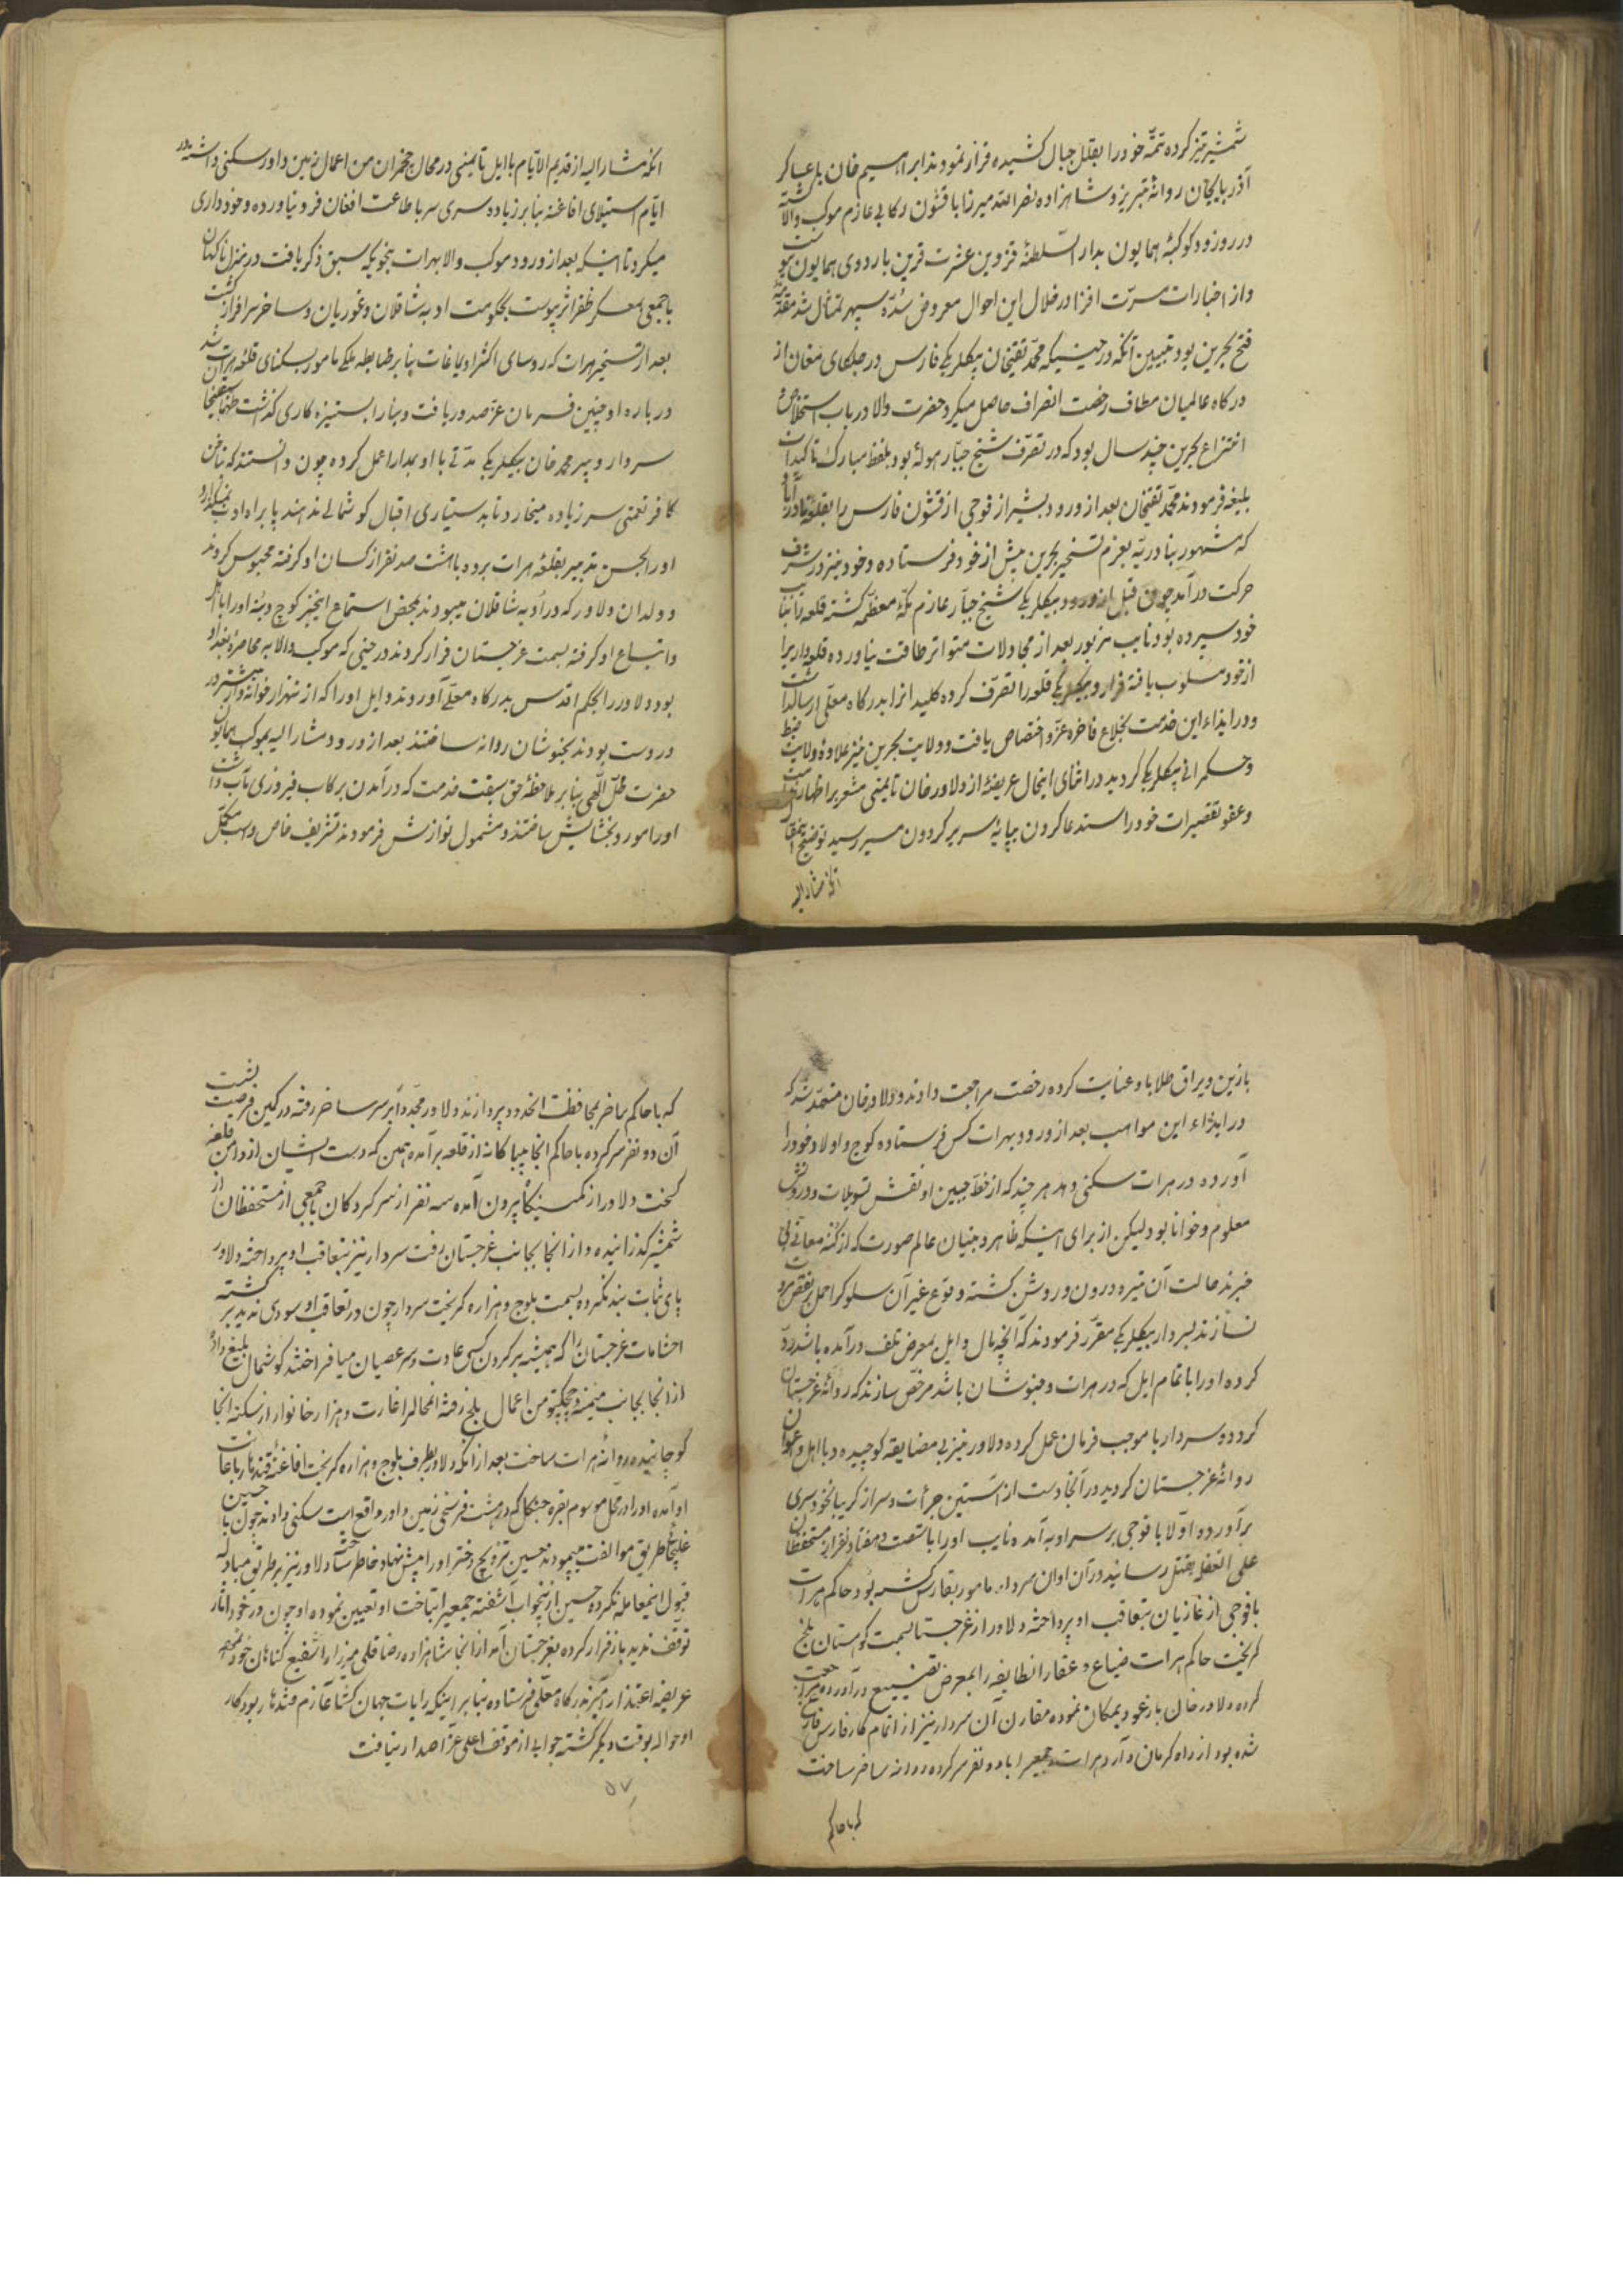 شمشیر تیز کرده تتمّه خود را بقلل جبال کشیده فرار نمودند ابراهیم خان با عساکر
آذربایجان روانهٔ تبریز و شاهزاده نصرالله میرزا با قشون رکابی عازم موکب والا گشته
در روز ورود کوکبهٔ همایون بدار السّلطنهٔ قزوین عشرت قرین باردوی همایون پیوست
و از اخبارات مسرّت افزا در خلال این احوال معروض سُدّهٔ سپهر تمثال شد مقدّمهٔ
فتح بحرین بود تبیین آنکه در حینیکه محمّد تقیخان بیگلربیکی فارس در جلکای مغان از
درکاه عالمیان مطاف رخصت انصراف حاصل میکرد حضرت والا در باب استخلاص و
انتزاع بحرین چند سال بود که در تصرّف شیخ جبّار هوله بود بلفظ مبارک تاکیدات
بلیغه فرمودند محمّد تقیخان بعد از ورود بشیراز فوجی از قشون فارس را بقلعهٔ نادرآباد
که مشهور بنادریّه بعزم تسخیر بحرین پیش از خود فرستاده و خود نیز در شرف
حرکت در آمد چون قبل از ورود بیکلربیکی شیخ جبّار عازم مکّهٔ معظّمه گشته قلعه را بنایب
خود سپرده بود نایب مزبور بعد از مجادلات متواتر طاقت نیاورده قلعه‌داری را
از خود مسلوب یافته فرار و بیکلربیکی قلعه را تصرّف کرده کلید انرا بدرکاه معلّی ارسالداشت
و در ایذاء این خدمت بخلاع فاخره عزّ و اختصاص یافت و ولایت بحرین نیز علاوهٔ ولایت ضبط
و حکمرانی بیکلربیکی کردید در اثنای اینحال عریضهٔ از دلاور خان تایمنی مشعر بر اظهار ندامت
و عفو تقصیرات خود را استدعا کردن بپایهٔ سریر کردون مسیر رسید توضیح اینمقال
آنکه مشارالیه
انکه مشارالیه از قدیم الایّام با ایل تایمنی در محال چخچران من اعمال زمین داور سکنی داشته در
ایّام استیلای افاغنه بنابر زیاده سری سر باطاعت افغان فرو نیاورده و خودداری
میکرد تا اینکه بعد از ورود موکب والا بهرات بنحویکه سبق ذکر یافت در منزل ناکهان
با جمعی بمعسکر ظفر اثر پیوست بحکومت اوبه شاقلان و غوریان و ساخر سرافراز گشت
بعد از تسخیر هرات که روسای اکثر اویماغات بنابر ضابطه ملکی مامور بسکنای قلعه هرات شد
در باره او چنین فرمان عزّ صدور یافت و بنا را بستیزه کاری کذاشت طهماسبقلیخان
سردار و پیر محمد خان بیکلربیکی مدّتی با او بمدارا عمل کرده چون دانستند که بناخن
کافر نعمتی سر زیاده میخارد تا بدستیاری اقبال کوشمالی ندهند پا براه ادب نمیکذارد
اورا بحسن تدبیر بقلعهٔ هرات برده با هشت صد نفر از کسان او کرفته محبوس کردند
و ولدان دلاور که در اوبه شاقلان میبودند بمحض استماع اینخبر کوچ و بنهٔ اورا با ایل
و اتباع او کرفته بسمت غرجستان فرار کردند در حینی که موکب والا به محاصرهٔ بغداد
بود دلاور را بحکم اقدس بدرکاه معلّی آوردند و ایل اورا که از سه‌هزار خوانه وار بیشتر در
در دست بودند بخبوشان روانه ساختند بعد از ورود مشارالیه بموکب همایون
حضرت ظلّ الّهی بنابر ملاحظهٔ حق سبقت خدمت که در آمدن برکاب فیروزی مآب داشت
اورا مورد بخشایش ساختند و مشمول نوازش فرمودند تشریف خاص و اسب مکلّل
با زین و یراق طلا باو عنایت کرده رخصت مراجعت دادند و دلاور خان متعهّد شد که
در ایذاء این مواهب بعد از ورود بهرات کس فرستاده کوچ و اولاد خود را
آورده در هرات سکنی دهد هر چند که از خطّ جبین او نقش تسویلات درونش
معلوم و خوانا بود لیکن از برای اینکه ظاهر و بنیان عالم صورت که از کنه معانی بی
خبرند حالت آن تیره درون و روش کشته وقوع غیر آن سلوک را حمل بنقض مروت
نسازند بسردار بیکلربیکی مقرّر فرمودند که آنچه مال و ایل بمعرض تلف در آمده باشد ردّ
کرده او را با تمام ایل که در هرات و خبوشان باشد مرخّص سازند که روانهٔ غرجستان
کردد و سردار با موجب فرمان عمل کرده دلاور نیز بی مضایقه کوچیده و با اهل و اعوان
روانهٔ غرجستان کردید در آنجا دست از آستین جرأت و سر از کریبان خودسری
برآورده اوّلا با فوجی بر سر اوبه آمده نایب اورا با شصت و هفتاد نفر از مستحفظان
علی الغفله بقتل رسانید در آن اوان سردار مامور بفارس کشته بود حاکم هرات
با فوجی از غازیان بتعاقب او پرداخته دلاور از غرجستان بسمت کوهستان بلخ
کریخت حاکم هرات ضیاع و عقار انطایفه را بمعرض تضییع در آورده مراجعت
کرده دلاور خان باز عود بمکان نموده مقارن آن سردار نیز از اتمام کار فارس فارغ
شده بود از راه کرمان وارد هرات و جمعی را با دو نفر سرکرده روانه ساخر ساخت
که با حاکم
که با حاکم ساخر بمحافظت انحدود پردازند دلاور مجدّداً بر سر ساخر رفته در کمین فرصت نشست
آن دو نفر سرکرده با حاکم انجا بیباکانه از قلعه بر آمده همین که دست ایشان از دامن قلعه
کسخت دلاور از کمینکاه بیرون آمده سه نفر از سرکردکان با جمعی از مستحفظان از
شمشیر کذرانیده و از انجا بجانب غرجستان رفت سردار نیز بتعاقب او پرداخته دلاور
پای ثبات بند نکرده بسمت بلوج و هزاره کریخت سردار چون در تعاقب او سودی ندید برگشته
احشامات غرجستان را که همیشه بر کردن کشی عادت و سر عصیان میافراختند کوشمال بلیغ داد
از انجا بجانب میمنه و چچکتو من اعمال بلخ رفته انمحالرا غارت و هزار خانوار از سکنه انجا
کوچانیده روانهٔ هرات ساخت بعد از انکه دلاور بطرف بلوج و هزاره کریخت افاغنه قندهار باغات
او آمده اورا در محل موسوم بقره جنکل که در هشت فرسخی زمین داور واقع است سکنی دادند چون با حسین
غلیجا طریق موالفت میپیمودند حسین تزویج دختر اورا پیش نهاد خاطر ساخت دلاور نیز بر طریق مبادله
قبول اینمعامله نکرده حسین از ینجواب آشفته جمعی را بتاخت او تعیین نموده او چون در خود آثار
توقّف ندید باز فرار کرده بغرجستان آمد از انجا شاهزاده رضا قلی میرزا را شفیع کناهان خود کرده
عریضه اعتذار آمیز بدرکاه معلّی فرستاده بنابر اینکه رایات جهان کشا عازم قندهار بود کار
او حواله بوقت دیکر کشته جوابی از موقف اعلی عزّ اصدار نیافت
۵۷